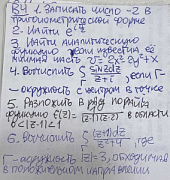 В4 1. Записать число -2 в
тригонометрической форме
2. Найти e
3. Найти аналитическую
функцию если известна её
мнимая часть V = 2x² - 2y² + x
4. Вычислить ∫ sin z dz / z + i, если Г -
- окружность с центром в точке
5. Разложить в ряд Лорана
функцию f(z) = в области
0 < |z - 1| < 1
6. Вычислить ∫ (z+1)dz / z² + 4, где
Г - окружность |z| = 3, обходимая
в положительном направлении